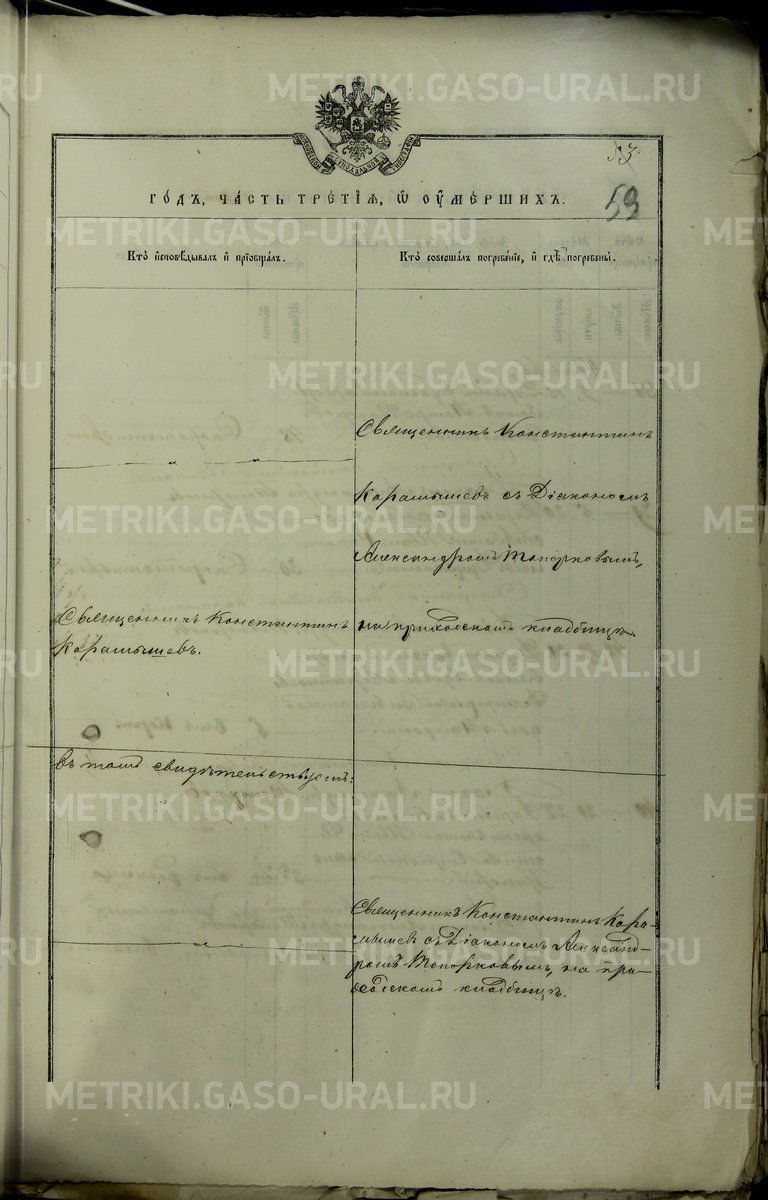 METRIKI.GASO-URAL.RU
53
59
МОСКОВСКОЙ СѴНОДАЛЬНОЙ ТИПОГРАФІИ
ГО́ДЪ, ЧА́СТЬ ТРЕ́ТІѦ, Ѡ҆ ОУ҆МЕ́РШИХЪ.
Кто̀ и҆сповѣ́дывалъ и҆ прїѡбща́лъ.
Кто̀ соверша́лъ погребе́нїе, и҆ гдѣ̀ погребены̀.
Священникъ Константинъ
Карамышевъ съ Діакономъ
Александромъ Топорковымъ,
на приходскомъ кладбищѣ.
Священникъ Константинъ
Карамышевъ.
Въ томъ свидѣтельствуемъ:
Священникъ Константинъ Кара-
мышевъ съ Діакономъ Александ-
ромъ Топорковымъ, на при-
ходскомъ кладбищѣ.